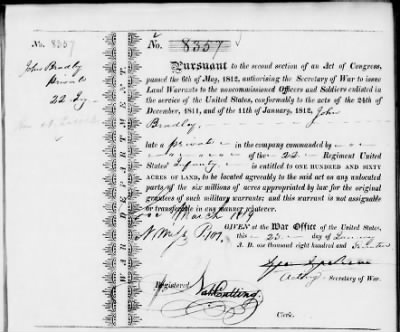 No. 8357
John Bradly
Private
22 Iny
WAR DEPARTMENT.
No. 8357
Pursuant to the second section of an Act of Congress,
passed the 6th of May, 1812, authorising the Secretary of War to issue
Land Warrants to the noncommissioned Officers and Soldiers enlisted in
the service of the United States, conformably to the acts of the 24th of
December, 1811, and of the 11th of January, 1812, John
Bradly
late a private in the company commanded by
of the 22 Regiment United
States' Infantry is entitled to ONE HUNDRED AND SIXTY
ACRES OF LAND, to be located agreeably to the said act on any unlocated
parts of the six millions of acres appropriated by law for the original
grantees of such military warrants; and this warrant is not assignable
or transferable in any manner whatever.
March 1819
GIVEN at the War Office of the United States,
this 23 day of
A. D. one thousand eight hundred and
Secretary of War.
Registered
Nat Cutting.
Clerk.